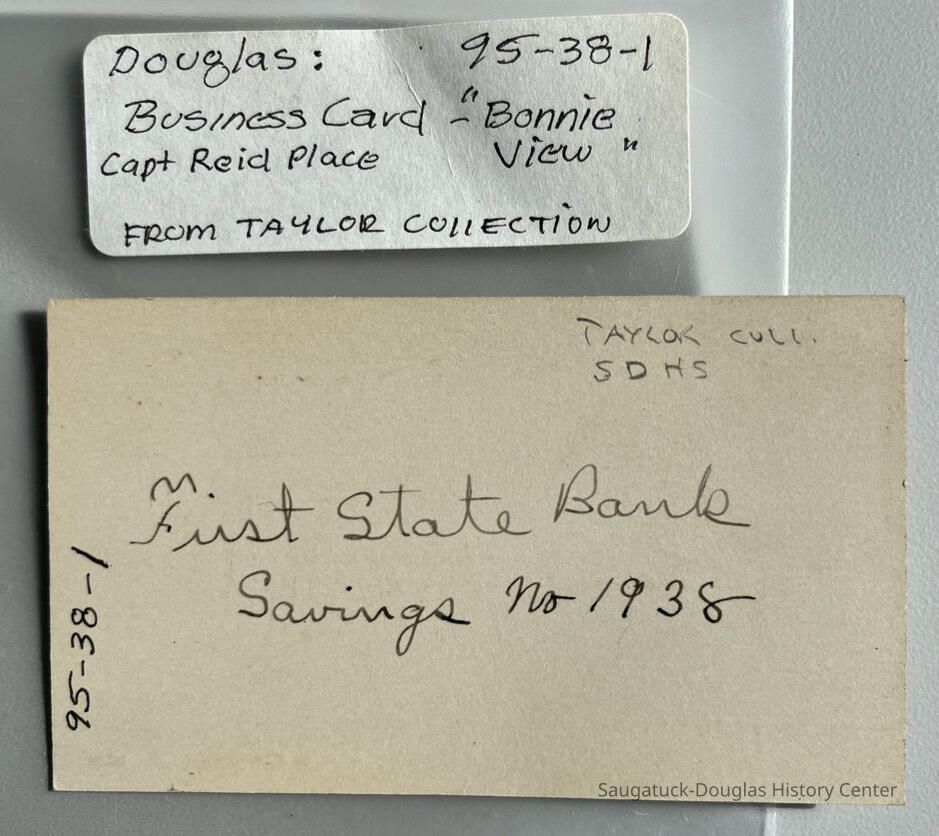 Douglas: 95-38-1
Business Card - "Bonnie
Capt Reid Place View"
FROM TAYLOR COLLECTION
TAYLOR COLL.
SDHS
First State Bank
Savings No 1938
95-38-1
Saugatuck-Douglas History Center